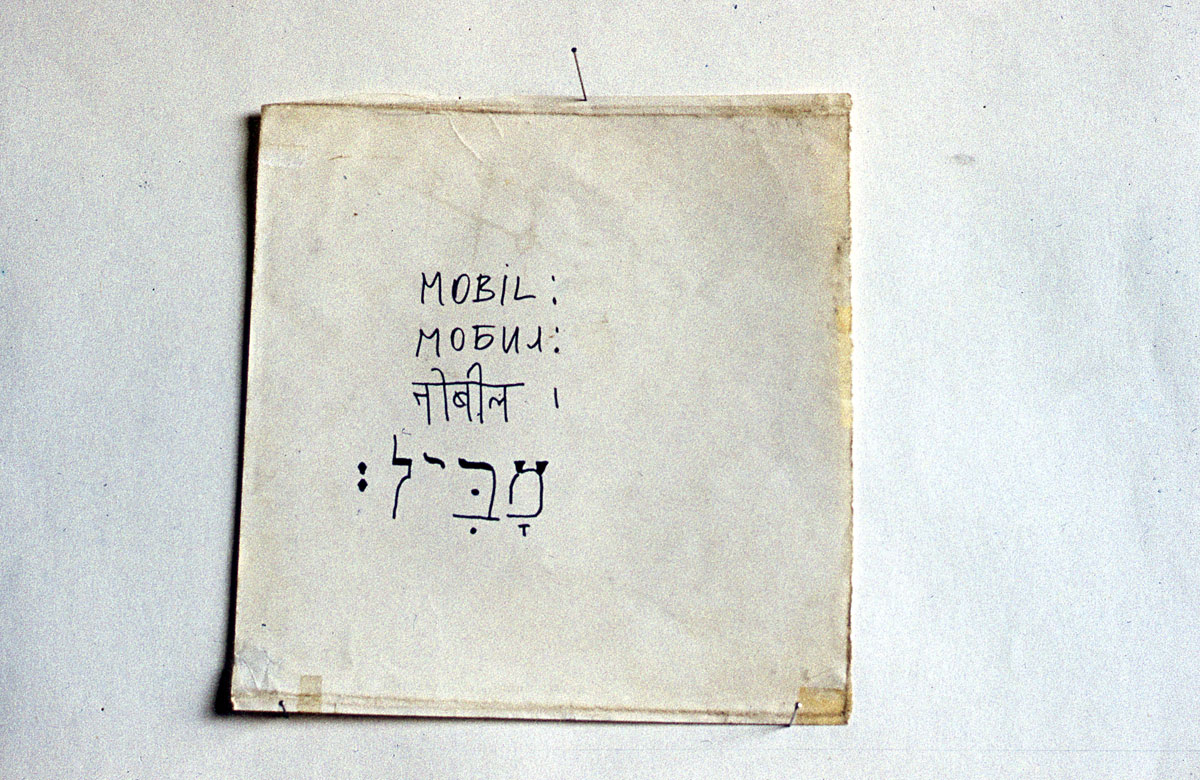 MOBiL:
МОБИЛ:
मोबील ।
מָבִּיל: